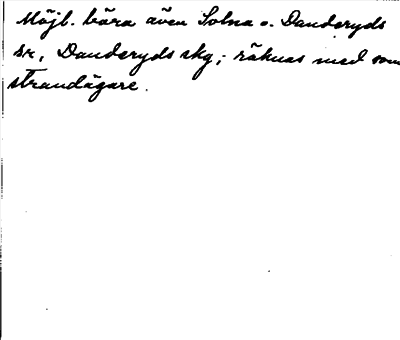 Möjl. böra även Solna o. Danderyds
sr, Danderyds skg; räknas med som
strandägare.